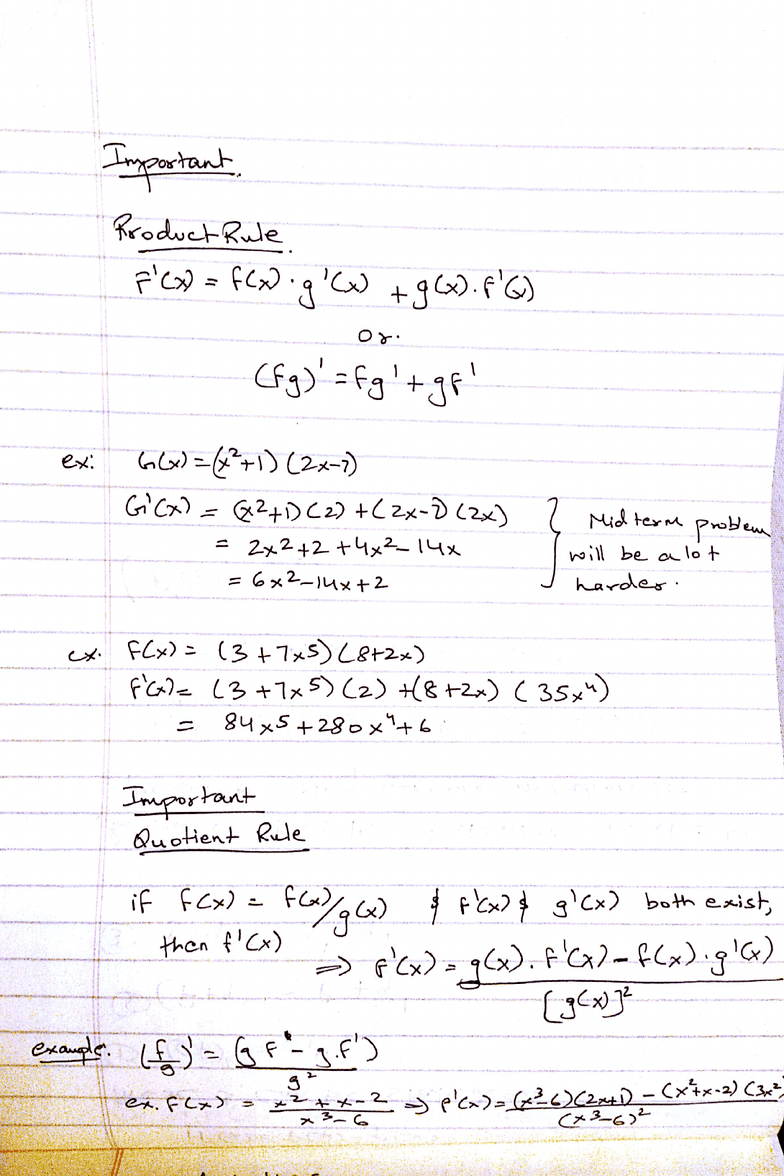 Important.
Product Rule.
F'(x) = f(x) · g'(x) + g(x) · f'(x)
or.
(fg)' = fg' + gf'
ex: G(x) = (x²+1) (2x-7)
G'(x) = (x²+1) (2) + (2x-7) (2x)
= 2x²+2 +4x²-14x
= 6x²-14x+2
} Midterm problem
will be a lot
harder.
ex. f(x) = (3+7x⁵) (8+2x)
f'(x) = (3+7x⁵) (2) + (8+2x) (35x⁴)
= 84x⁵+280x⁴+6
Important
Quotient Rule
if f(x) = f(x)/g(x) & f'(x) & g'(x) both exist,
then f'(x)
⇒ F'(x) = g(x) . f'(x) - f(x) . g'(x) / [g(x)]²
example. (f/g)' = (g f' - g.f') / g²
ex. f(x) = x²+x-2 / x³-6 ⇒ f'(x) = (x³-6)(2x+1) - (x²+x-2) (3x² / (x³-6)²